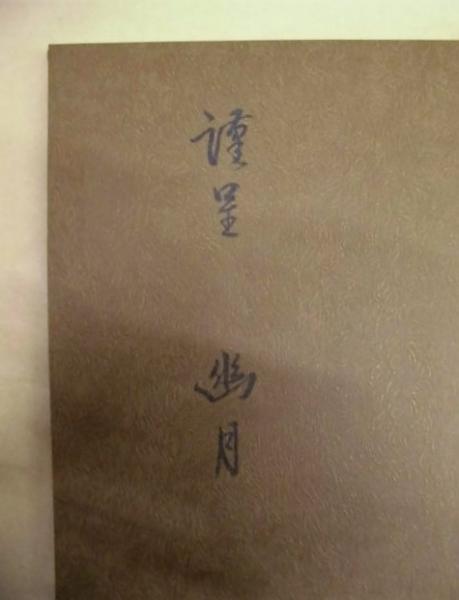 謹呈 幽月